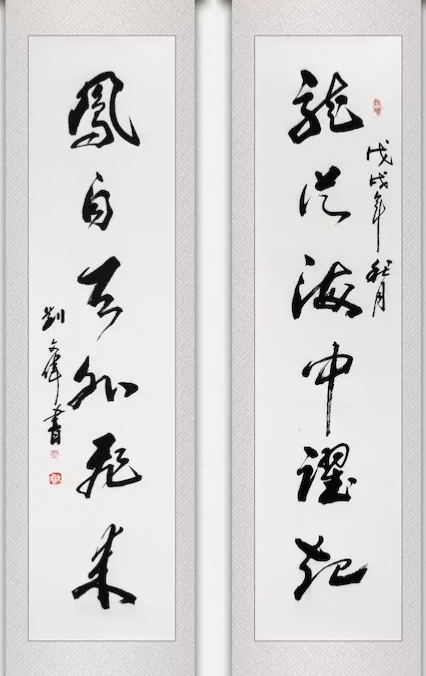 戊戌年秋月
龍從海中躍起
鳳自天外飛來
劉文偉書